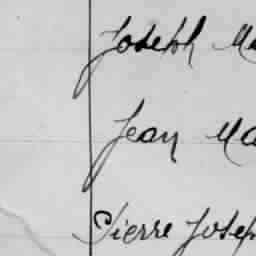 Joseph Ma
Jean Ma
Pierre Josep